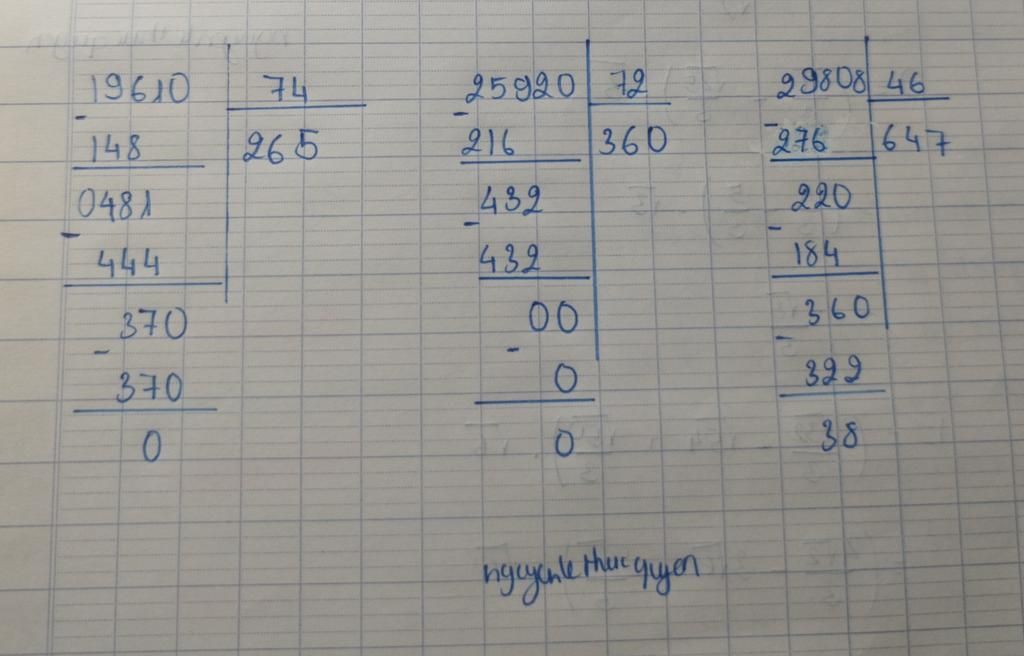 19610 74
-
148 265
0481
-
444
370
-
370
0
25920 72
-
216 360
432
-
432
00
-
0
0
29808 46
-
276 647
220
-
184
360
-
322
38
nguyenle thuc quyen